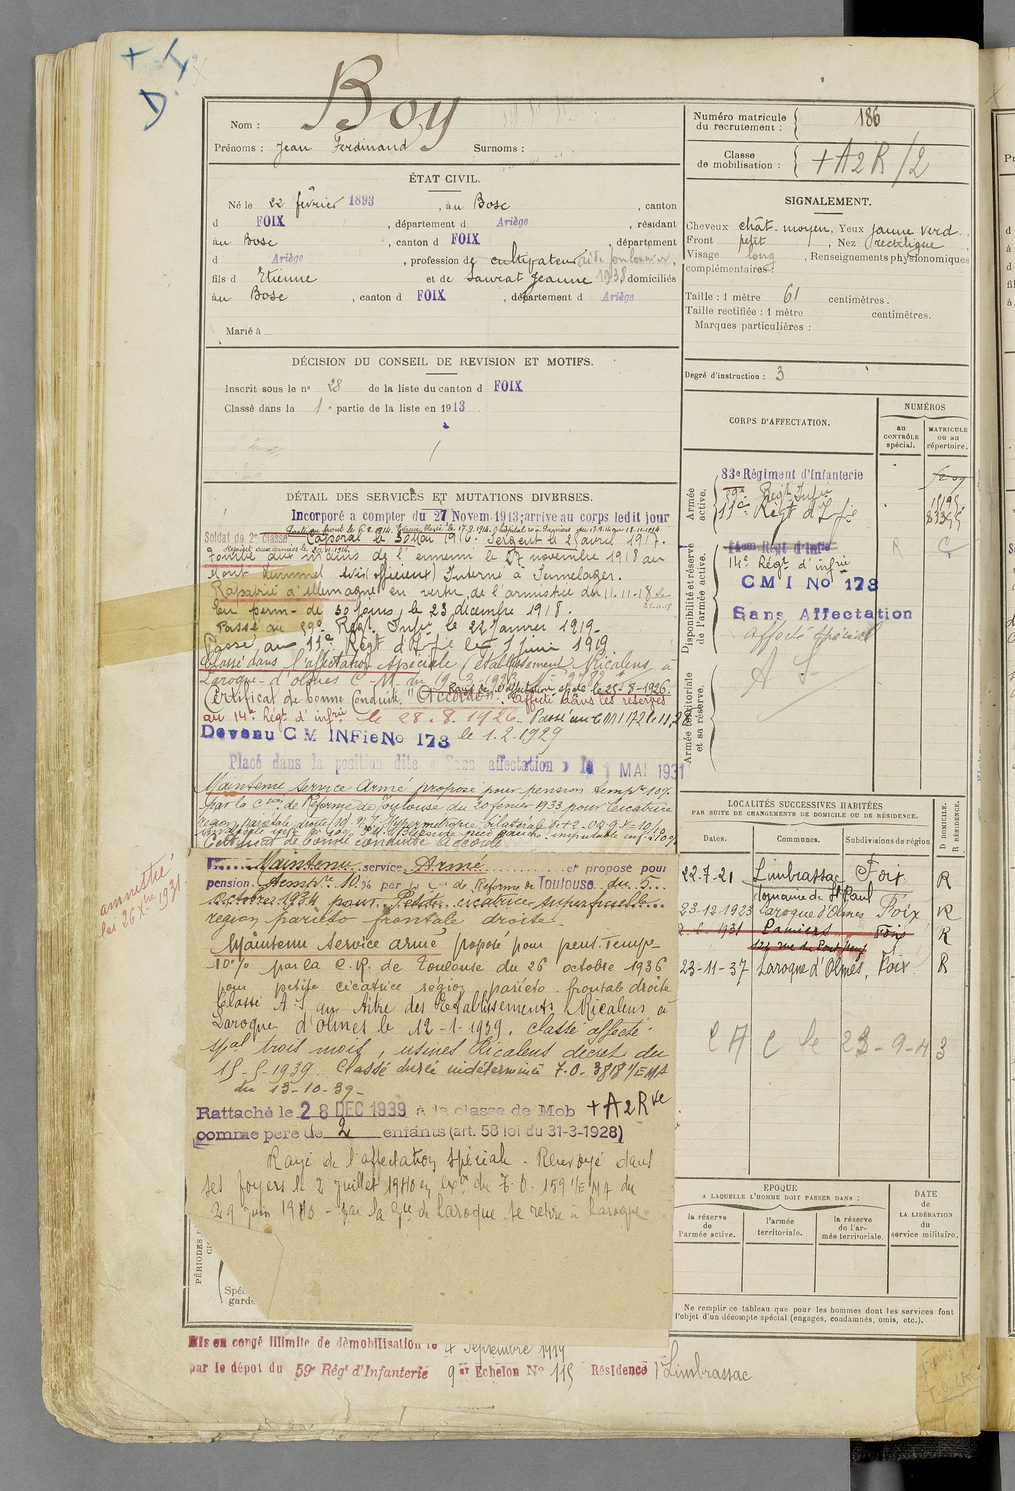 +
D
Nom : Boy
Prénoms : Jean Ferdinand Surnoms :
ÉTAT CIVIL.
Né le 22 février 1893, à u Bosc, canton
d FOIX, département d Ariège, résidant
à u Bosc, canton d FOIX, département
d Ariège, profession de cultivateur
fils d Etienne et de Saurat Jeanne 1938 domiciliés
à u Bosc, canton d FOIX, département d Ariège
Marié à
DÉCISION DU CONSEIL DE REVISION ET MOTIFS.
Inscrit sous le nº 28 de la liste du canton d FOIX
Classé dans la 1e partie de la liste en 1913
DÉTAIL DES SERVICES ET MUTATIONS DIVERSES.
Incorporé a compter du 27 Novem. 1913; arrive au corps ledit jour
Soldat de 2e classe Caporal le 30 Mai 1916. Sergent le 21 avril 1917.
Tombé aux mains de l'ennemi le 27 novembre 1918 au
Mont Kemmel (Avis officieux) Interné à Sennelager.
Rapatrié d'Allemagne en vertu de l'armistice du 11.11.18 le
En perm- de 30 jours, le 23 décembre 1918.
Passé au 59e Régt Infie le 22 Janvier 1919.
Passé au 11e Régt d'Ifie le 1 Juin 1919
Classé dans l'affectation spéciale (établissement Ricalens, à
Laroque-d'olmes
Certificat de bonne Conduite "Accordé". affecté dans les réserves
au 14e Régt d'infie le 28.8.1926. Passé au CMI 172 le 11,2,28
Devenu C M INFie No 173 le 1.2.1929
Placé dans la position dite « Sans affectation » le 1 MAI 1931
Maintenu Service Armé proposé pour pension tempre 10%
Par la Con de Réforme de Toulouse du 20 fevrier 1933 pour cicatrice
région pariétale droite
Certificat de bonne conduite accordé
amnistié
loi 26 Xbre 1931.
Maintenu service Armé et proposé pour
pension tempre 10% par la Con de Réforme de Toulouse du 5
octobre 1934 pour Petite cicatrice superficielle
région pariéto frontale droite
Maintenu Service armé proposé pour pens. Temp-
10% par la C.R. de Toulouse du 26 octobre 1936
pour petite cicatrice région pariéto-frontale droite
Classé A.S au titre des Etablissements Ricalens à
Laroque d'olmes le 12-1-1939. Classé affecté
spal trois mois, usines Ricalens décret du
15-5-1939. Classé durée indéterminée T.O. 3818 1/EMA
du 13-10-39-
Rattaché le 28 DEC 1939 à la classe de Mob +A2Rve
comme pere de 2 enfants (art. 58 loi du 31-3-1928)
Rayé de l'affectation spéciale - Renvoyé dans
ses foyers le 2 juillet 1940 en exon du T.O. 159 1/EMA du
29 juin 1940 - par la Gie de Laroque se retire à Laroque.
PÉRIODES
Mis en congé illimité de démobilisation le 4 Septembre 1919
par le dépot du 59e Régt d'Infanterie 9 er Echelon No 115 Résidence Limbrassac
Numéro matricule du recrutement : 186
Classe de mobilisation : +A2R/2
SIGNALEMENT.
Cheveux chât. moyen, Yeux jaune verd.
Front petit, Nez rectiligne
Visage long, Renseignements physionomiques
complémentaires :
Taille : 1 mètre 61 centimètres.
Taille rectifiée : 1 mètre centimètres.
Marques particulières :
Degré d'instruction : 3
CORPS D'AFFECTATION.
NUMÉROS
au CONTRÔLE spécial.
MATRICULE ou au répertoire.
Armée active.
83e Régiment d'Infanterie
59e Régt Infie
11e Régt d'Ifie
Disponibilité et réserve de l'armée active.
14eme Régt d'Infie
14e Régt d'infie
R
C
CMI No 173
Sans Affectation
affecté spécial
A S
Armée territoriale et sa réserve.
LOCALITÉS SUCCESSIVES HABITÉES
PAR SUITE DE CHANGEMENTS DE DOMICILE OU DE RÉSIDENCE.
Dates. Communes. Subdivisions de région D. DOMICILE. R. RÉSIDENCE.
22-7-21 Limbrassac Foix R
domaine de St Paul
23-12-1923 Laroque d'Olmes Foix R
1931 Pamiers Foix R
23-11-37 Laroque d'Olmes, Foix R
C A C le 23-9-43
EPOQUE
A LAQUELLE L'HOMME DOIT PASSER DANS :
la réserve de l'armée active.
l'armée territoriale.
la réserve de l'armée territoriale.
DATE DE LA LIBÉRATION du service militaire.
Ne remplir ce tableau que pour les hommes dont les services font
l'objet d'un décompte spécial (engagés, condamnés, omis, etc.).